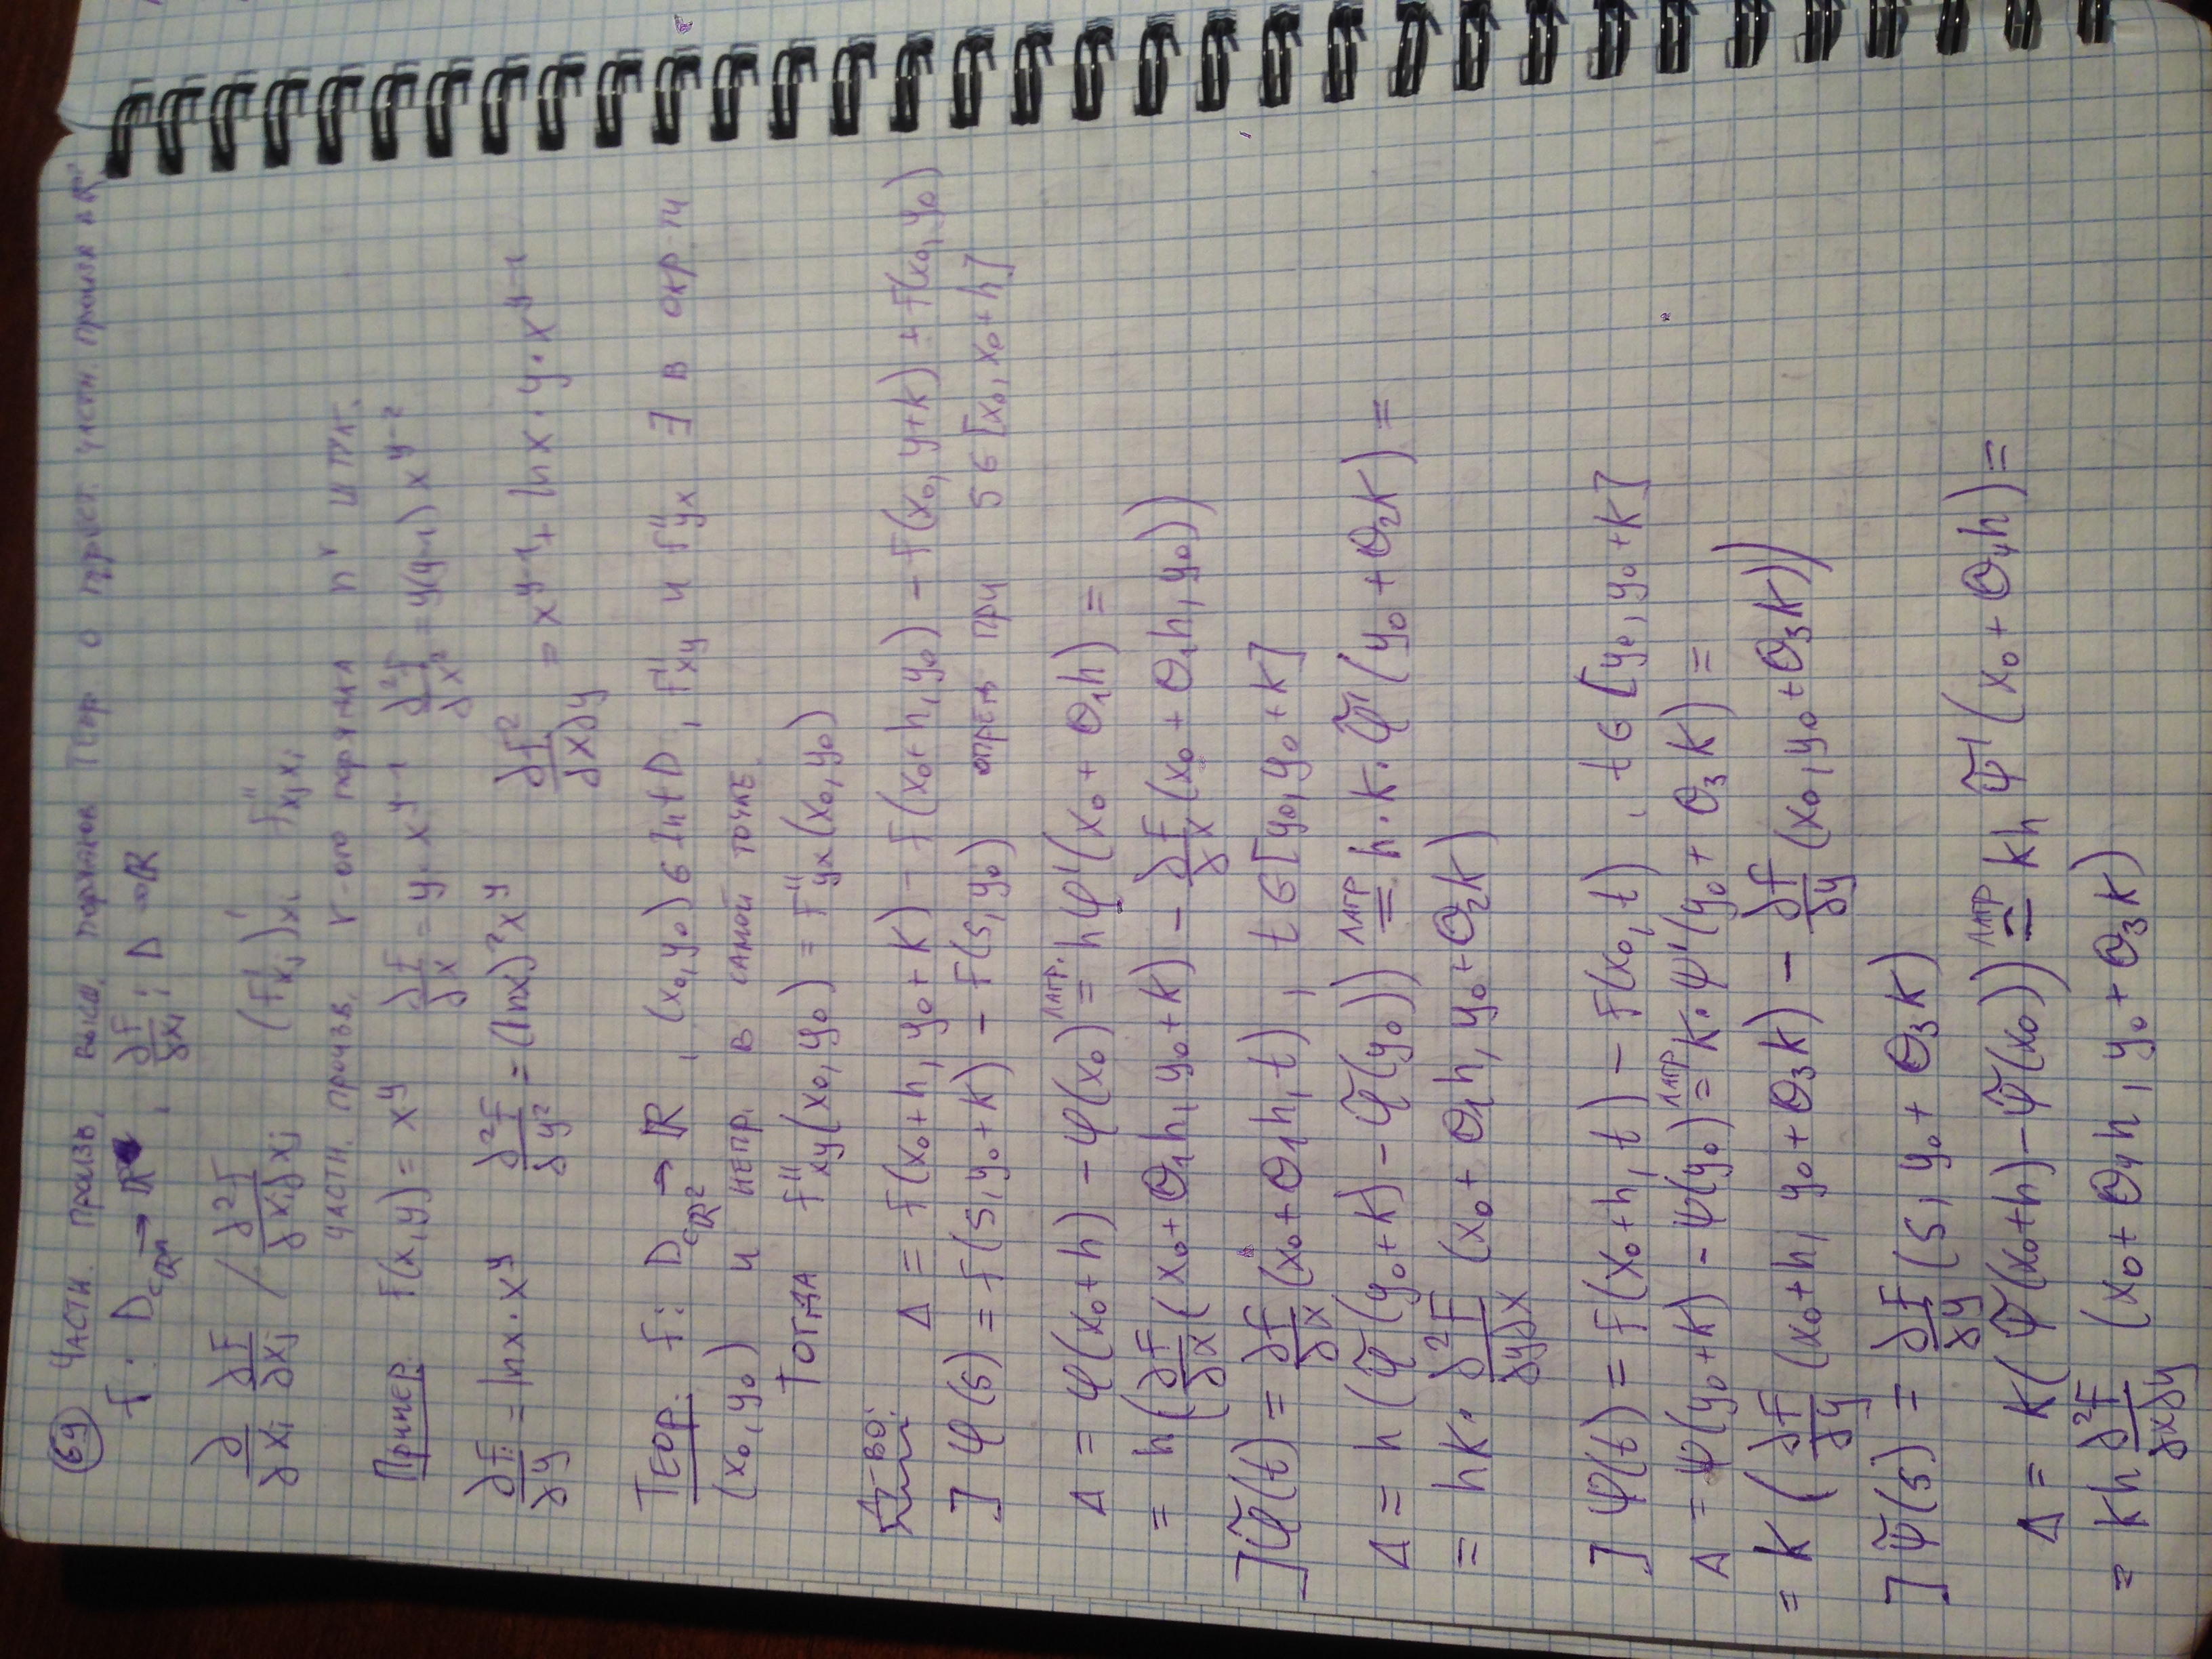 69 Части. произв. высш. порядков Теор о перест. частн. произв в ℝ²
f : D⊂ℝⁿ → ℝ , ∂f/∂xᵢ : D → ℝ
∂/∂xᵢ ∂f/∂xⱼ / ∂²f/∂xᵢ∂xⱼ (f'xⱼ)'xᵢ f''xⱼxᵢ
части. произв. r-ого порядка nʳ штук.
Пример. f(x,y) = x^y ∂f/∂x = y · x^(y-1) ∂²f/∂x² = y(y-1) x^(y-2)
∂f/∂y = lnx · x^y ∂²f/∂y² = (lnx)² x^y ∂f²/∂x∂y = x^(y-1) + lnx · y · x^(y-1)
Теор. f : D⊂ℝ² → ℝ , (x₀,y₀) ∈ Int D , f''xy и f''yx ∃ в окр-ти
(x₀,y₀) и непр. в самой точке.
Тогда f''xy(x₀,y₀) = f''yx(x₀,y₀)
Д-во:
Δ = f(x₀+h, y₀+k) - f(x₀+h, y₀) - f(x₀, y+k) + f(x₀,y₀)
] φ(s) = f(s, y₀+k) - f(s, y₀) опред при s ∈ [x₀, x₀+h]
Δ = φ(x₀+h) - φ(x₀) =(лагр.) hφ'(x₀ + θ₁h) =
= h(∂f/∂x (x₀ + θ₁h, y₀+k) - ∂f/∂x (x₀ + θ₁h, y₀))
] φ̃(t) = ∂f/∂x (x₀+θ₁h, t) , t ∈ [y₀, y₀+k]
Δ = h (φ̃(y₀+k) - φ̃(y₀)) =(лагр) h·k·φ̃'(y₀ + θ₂k) =
= hk · ∂²f/∂y∂x (x₀ + θ₁h, y₀+θ₂k)
] ψ(t) = f(x₀+h, t) - f(x₀, t) , t ∈ [y₀, y₀+k]
Δ = ψ(y₀+k) - ψ(y₀) =(лагр) k·ψ'(y₀ + θ₃k) =
= k (∂f/∂y (x₀+h, y₀+θ₃k) - ∂f/∂y (x₀, y₀+θ₃k))
] ψ̃(s) = ∂f/∂y (s, y₀ + θ₃k)
Δ = k(ψ̃(x₀+h) - ψ̃(x₀)) =(лагр) kh ψ̃'(x₀ + θ₄h) =
= kh ∂²f/∂x∂y (x₀ + θ₄h, y₀ + θ₃k)